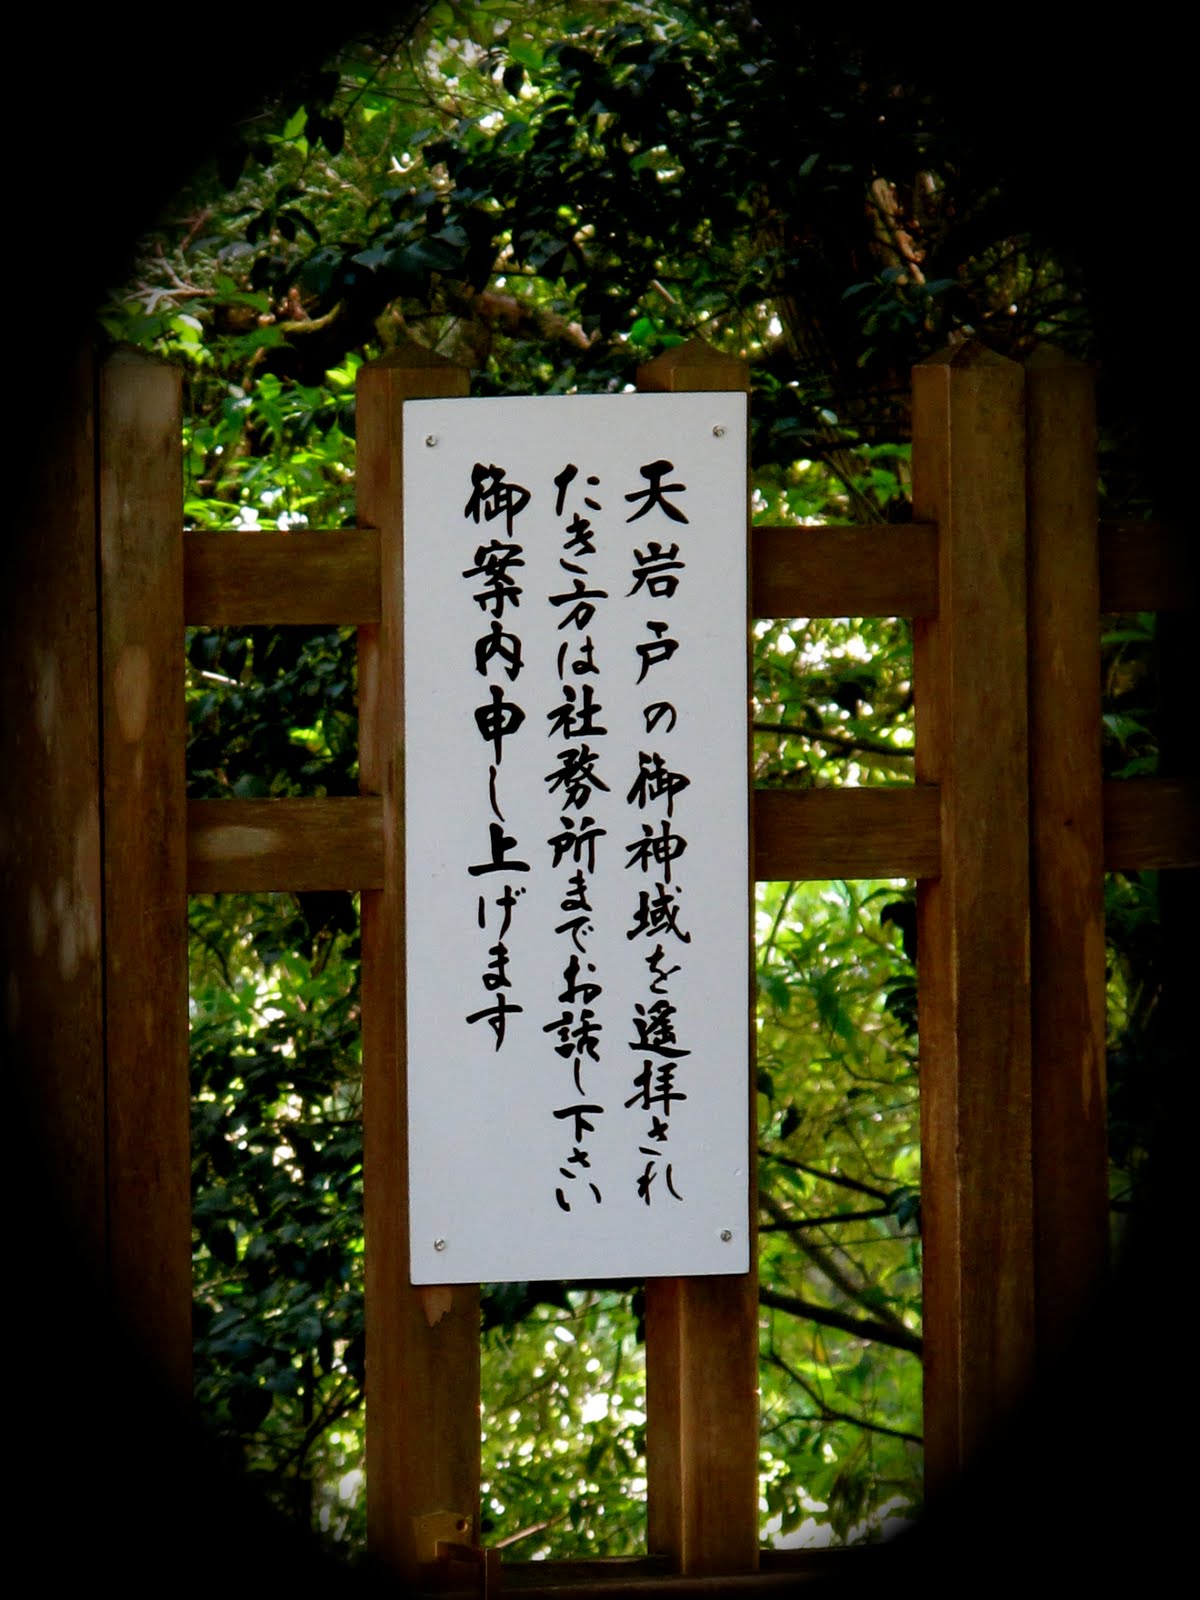 天岩戸の御神域を遙拝され
たき方は社務所までお話し下さい
御案内申し上げます